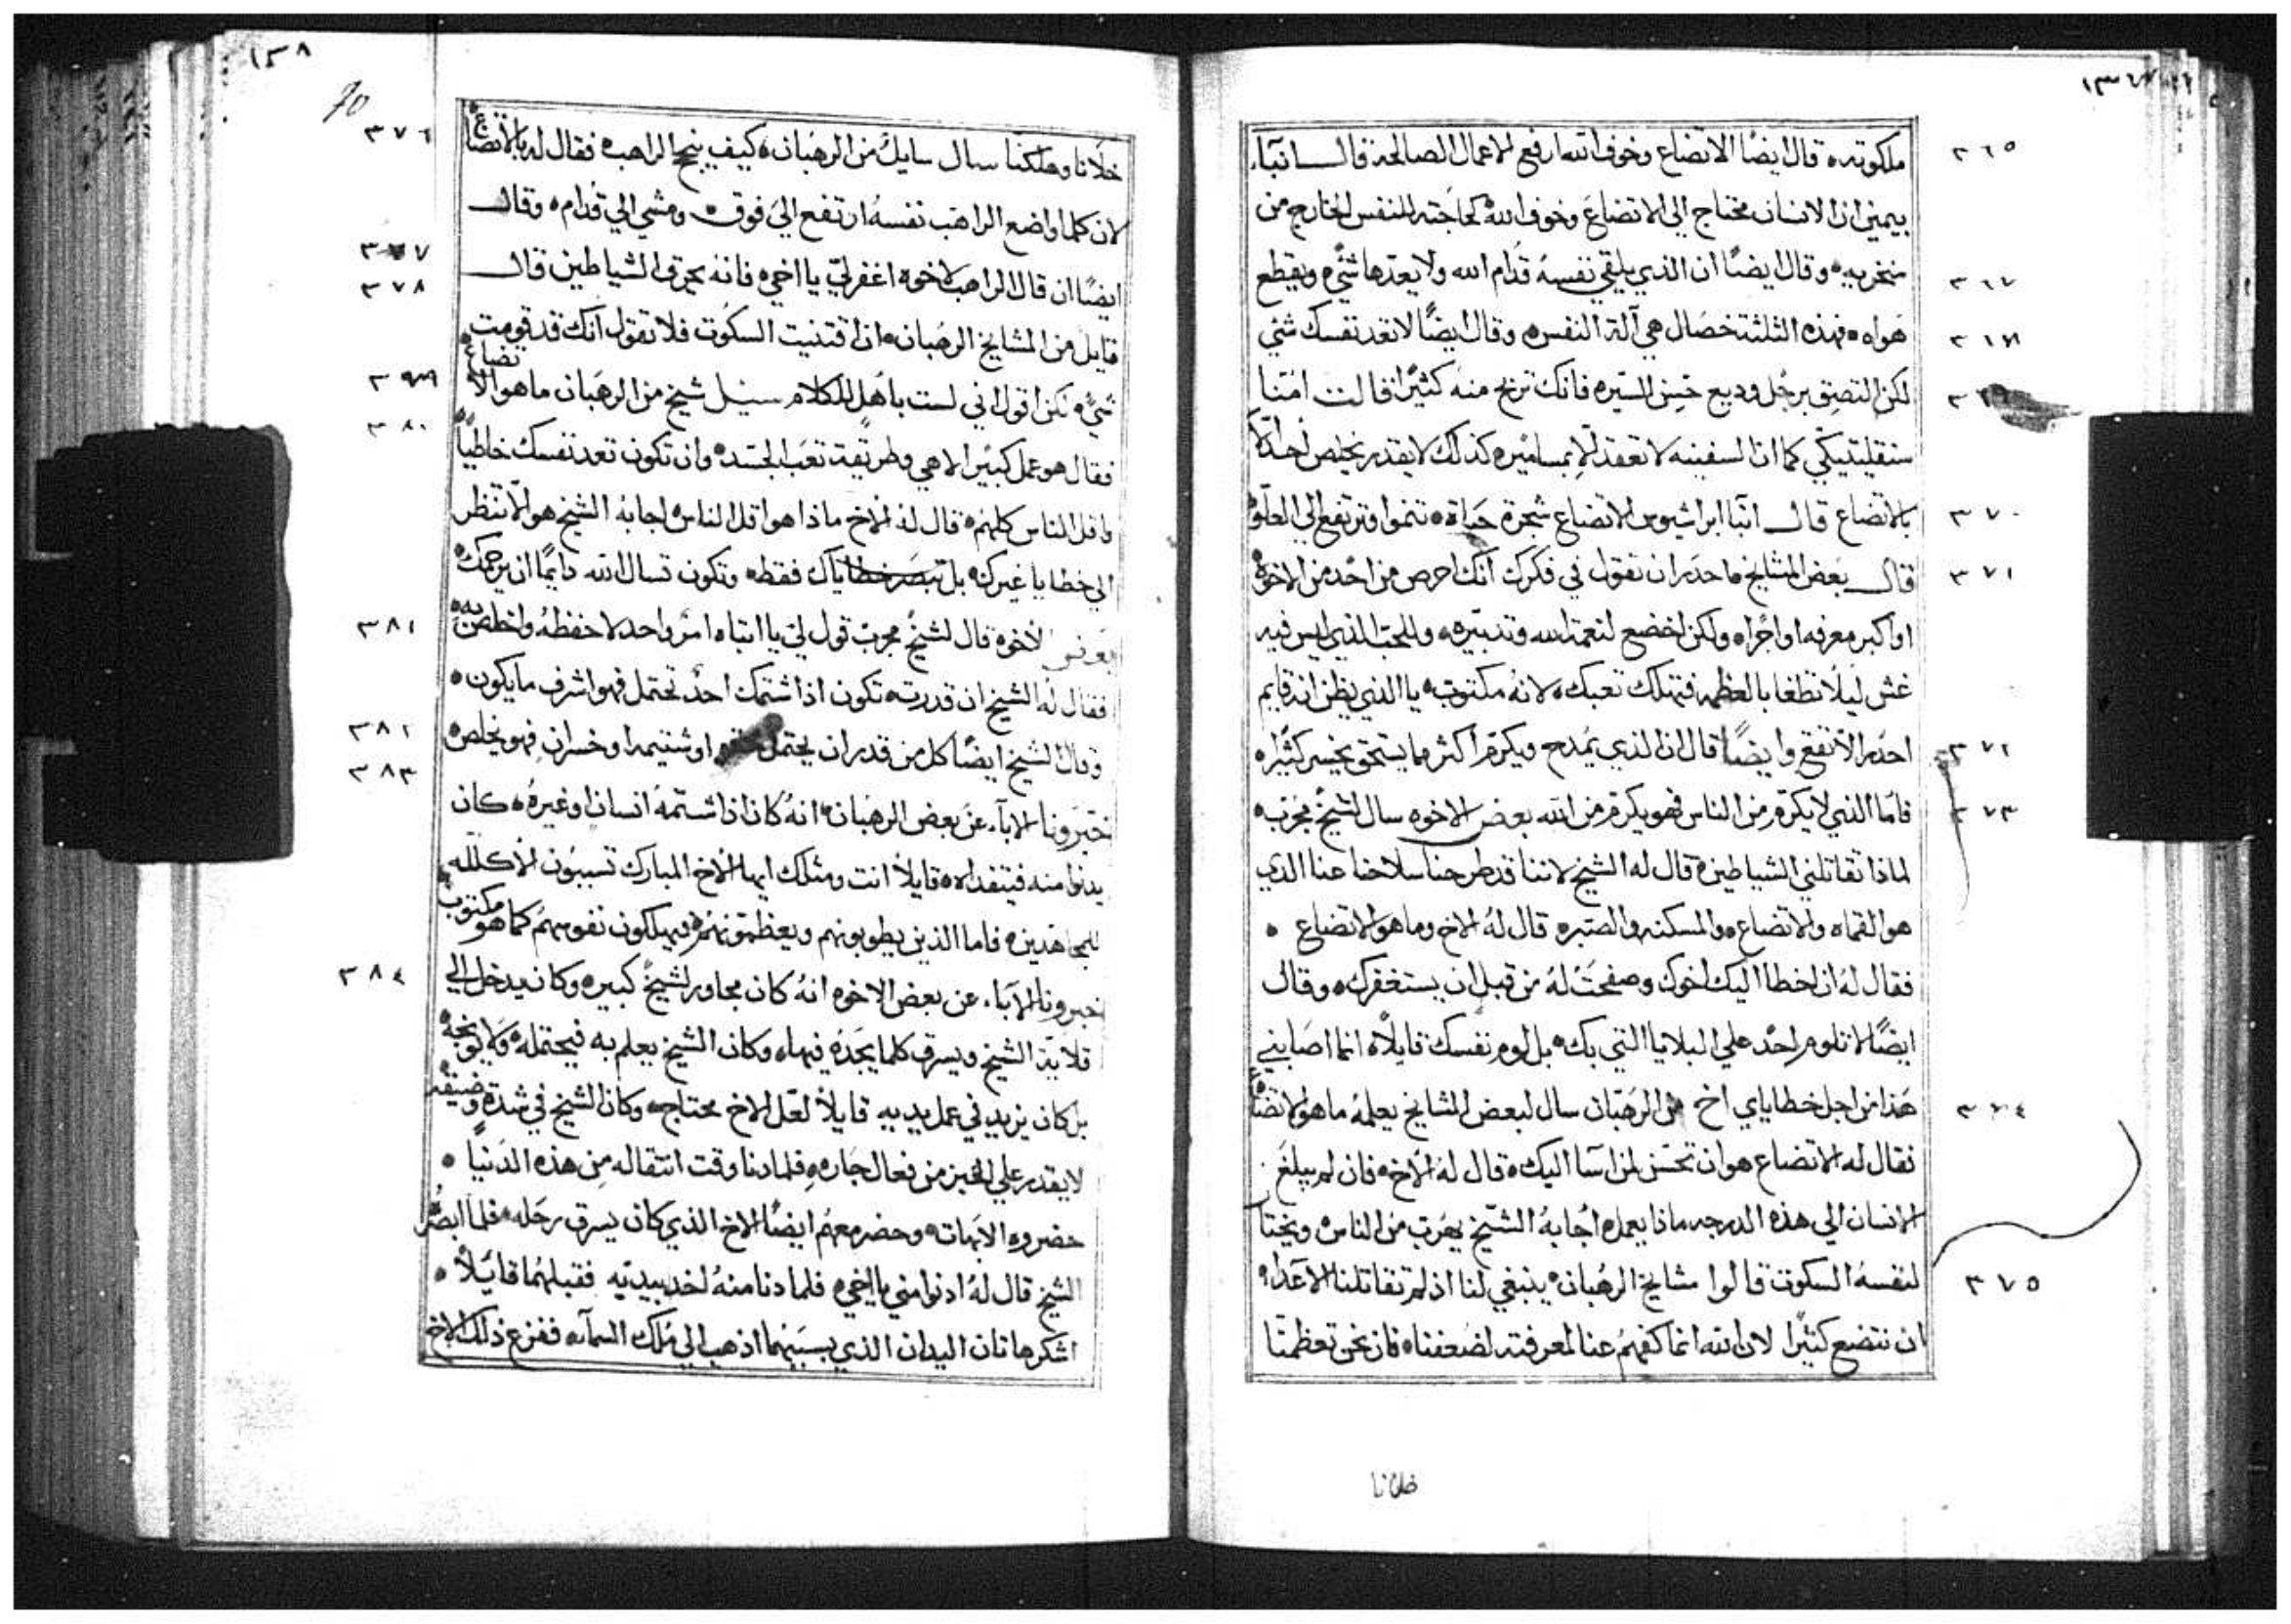 ملكوته ه قال ايضًا الاتضاع وخوف الله ارفع الاعمال الصالحة قالــ انبآء
بيمين ان الانسان محتاج الي الاتضاع وخوف الله كحاجته للنفس الخارج من
منخريه ه وقال ايضًا ان الذي يلقي نفسهُ قدام الله ولا يعدها شئ ه ويقطع
هواه ه فهذه الثلثة خصَال هي آلة النفس ه وقال ايضًا لا تعد نفسك شئ
لكن التصق برجُل وديع حَسن السيره فانك تربح منهُ كثيرًا قالت امّنا
سنقليتيكي كما ان السفينه لا تعقد إلا بمساميره كذلك لا يقدر يخلص أحدًا إلا
بالاتضاع قالــ انبّا ابراشيوس الاتضاع شجرة حَياة ه تنموا وترتفع الي العلو ه
قالــ بَعض المشايخ ه احدر ان تقول في فكرك انك احرص من احد من الاخوة
او اكبر معرفه او اجرًا ه ولكن اخضع لنعمة الله وتدبيره ه وللحَب الذي ليس فيه
غش ليلا تطغا بالعظمه فتهلك تعبك ه لانهُ مكتوب ه يا الذي يظن انه قايم
احدر الا تقع وايضًا قال ان الذي يمُدح ويكرّم اكثر مما يستحق يخسر كثيرًا ه
فاما الذي لا يكرّم من الناس فهو يكرم من الله بعض الاخوه سال لشيخٍ مجُرب ه
لماذا تقاتلني الشياطين ه قال له الشيخ لاننا قد طرحنا سلاحنا عنا الذي
هو القماه والاتضاع ه والمسكنه والصَبر ه قال لهُ الاخ وما هو الاتضاع ه
فقال لهُ ان اخطا اليك اخوك وصفحَت لهُ من قبل ان يستغفرك ه وقال
ايضًا لا تلوم احدٌ علي البلايا التي بك ه بل لوم نفسك قايلاً ه انما اصَابني
هَذا من اجل خطاياي اخ من الرهَبان سال لبعض المشايخ يعلمهُ ما هو الاتضاع
فقال له الاتضاع هو ان تحسَن لمن اسَا اليك ه قال لهُ الاخ ه فان لم يبلغَ
الانسان الي هذه الدرجه ماذا يعمل ه اجابهُ الشيخ يهَرب من الناس ه ويختار
لنفسهُ السكوت قالوا مشايخ الرهُبان ه ينبغي لنا اذ لم تقاتلنا الاعَداء ه
ان نتضع كثيرًا لان الله انما كفهمُ عنا لمعرفته لضَعفنا ه فان نحَن تعظمنا
خلانا
٣٦٥
٣٦٧
٣٧٠
٣٧١
٣٧٢
٣٧٣
٣٧٤
٣٧٥
١٣٨
70
خلاّنا وهلَكنا سال سايلٌ من الرهَبان ه كيف ينجح الراهب ه فقال له بالاتضاع
لان كلما اواضع الراهَب نفسهُ ارتفع اليَ فوق ه ومشي الي قدام ه وقالــ
ايضًا ان قال الراهبَ لاخوه اغفر ليّ يا اخي ه فانهُ يحرق الشياطين قالــ
قايل من المشايخ الرهبان ه ان اقتنيت السكوت فلا تقول انك قد قومت
شيء ه لكن اقول اني لست باهَل للكلام سيل شيخ من الرهَبان ما هو الاتضاع
فقال هو عمل كبير الاهي وطريقته تعَب الجسَد ه وان تكون تعد نفسك خاطياً
واقل الناس كلهمُ ه قال لهُ الاخ ماذا هوا قل الناس ه اجابهُ الشيخ هو الا تنظر
الي خطايا غيرك ه بل تبصَر خطاياك فقط ه وتكون تسال الله دايمًا ان يرحمك ه
الاخوه قال لشيخٍ مجرب قول لي يا ابتاه امرٌ واحد لاحفظهُ واخلص به ه
فقال لهُ الشيخ ان قدرت ه تكون اذا شتمك احدٌ تحتمل فهو اشرف ما يكون ه
وقال الشيخ ايضًا كل من قدر ان يحتمل او شتيمه او خسران فهو يخلص ه
خبَرونا الابآء عَن بعض الرهبان ه انهُ كان اذا شتمهُ انسان او غيرهُ ه كان
يدنوا منه قايلاً انت ومثلك ايها الاخ المبارك تسببون الاكلله
للمجاهَدين ه فاما الذين يطوبونهم ويعظمونهم ه فيهلكون نفوسهمُ كما هو مكتوب ه
خبرونا الابآء عن بعض الاخوه انهُ كان مجاور لشيخٌ كبير ه وكان يدخل الي
قلاية الشيخ ويسرق كلما يجَدهُ فيها ه وكان الشيخ يعلم به فيحتمله ه ولا يوبخهُ
بل كان يزيد في عمل يديه قايلاً لعَل الاخ محتاج ه وكان الشيخ في شدة وضيقه
لا يقدر علي الخبز من فعال جَاره ه فلما دنا وقت انتقاله مِن هذه الدَنيا ه
حضروه الابَهات ه وحضر معهمُ ايضًا الاخ الذي كان يسرق رحَله ه فلما ابصَر
الشيخ قال لهُ ادنوا مني يا اخي ه فلما دنا منهُ اخد بيديَه فقبلهمُا قايَلاً ه
اشكر هاتان اليدان الذي بسَببهما اذهب الي مُلك السمآء ه ففزع ذلك الاخ
٣٧٦
٣٧٧
٣٧٨
٣٨٠
٣٨١
٣٨٢
٣٨٣
٣٨٤